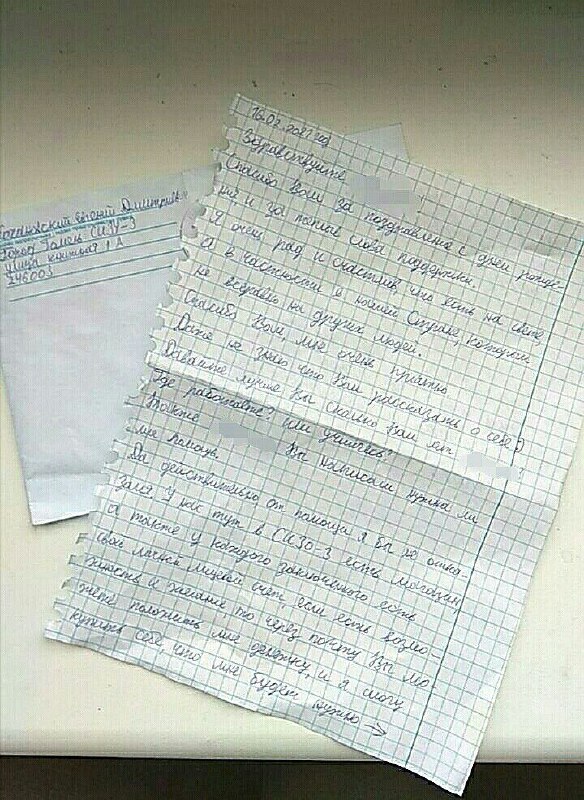 Евгений Дмитриевич
город Гомель СИЗО-3
улица книжная 1 А
246003
16.02.2021 год
Здравствуйте
Спасибо Вам за поздравления с днём рожде-
ния и за тёплые слова поддержки.
Я очень рад и счастлив, что есть на свете,
а в частности в нашей Стране, которым
не всеравно на других людей.
Спасибо Вам, мне очень приятно
Даже не знаю что Вам рассказать о себе)
Давайте лучше Вы сколько Вам лет ?
Где работаете? или учитесь?
Также Вы написали нужна ли
мне помощь.
Да действительно, от помощи я бы не отка-
зался. У нас тут в СИЗО-3 есть магазин,
а также у каждого заключённого есть
свой личный лицевой счёт, если есть возмо-
жность и желание то через почту Вы мо-
жете положить мне денежку, и я смогу
купить себе, что мне будет нужно →